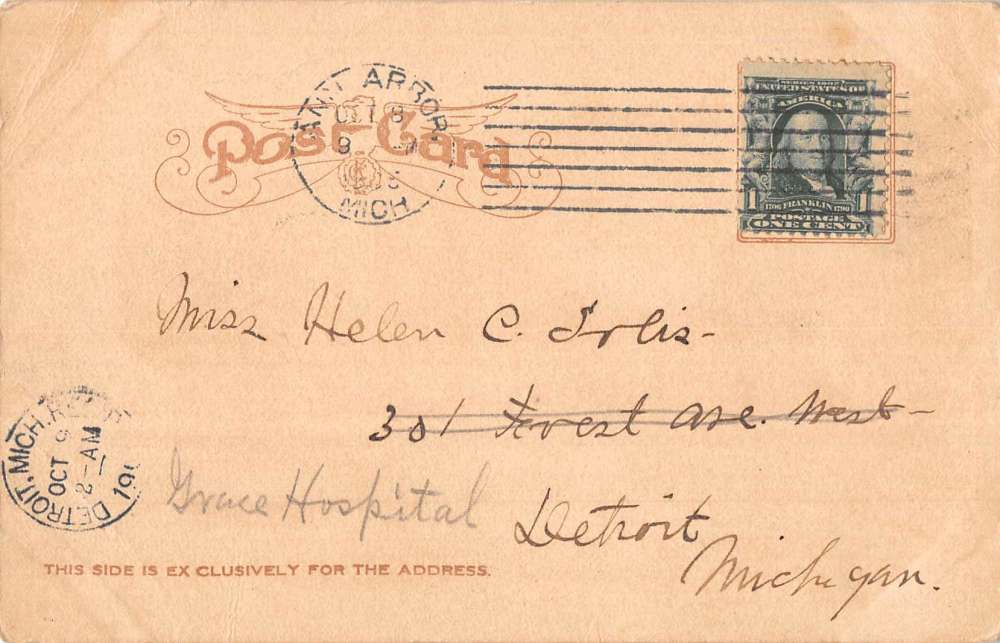 Post Card
ANN ARBOR,
OCT 8
MICH
SERIES 1902
UNITED STATES OF
AMERICA
1 1706 FRANKLIN 1790 1
POSTAGE
ONE CENT
Miss Helen C.
301 Forest Ave. West-
DETROIT, MICH.
OCT 9
2-AM
190
Grace Hospital
Detroit
Michigan.
THIS SIDE IS EXCLUSIVELY FOR THE ADDRESS.